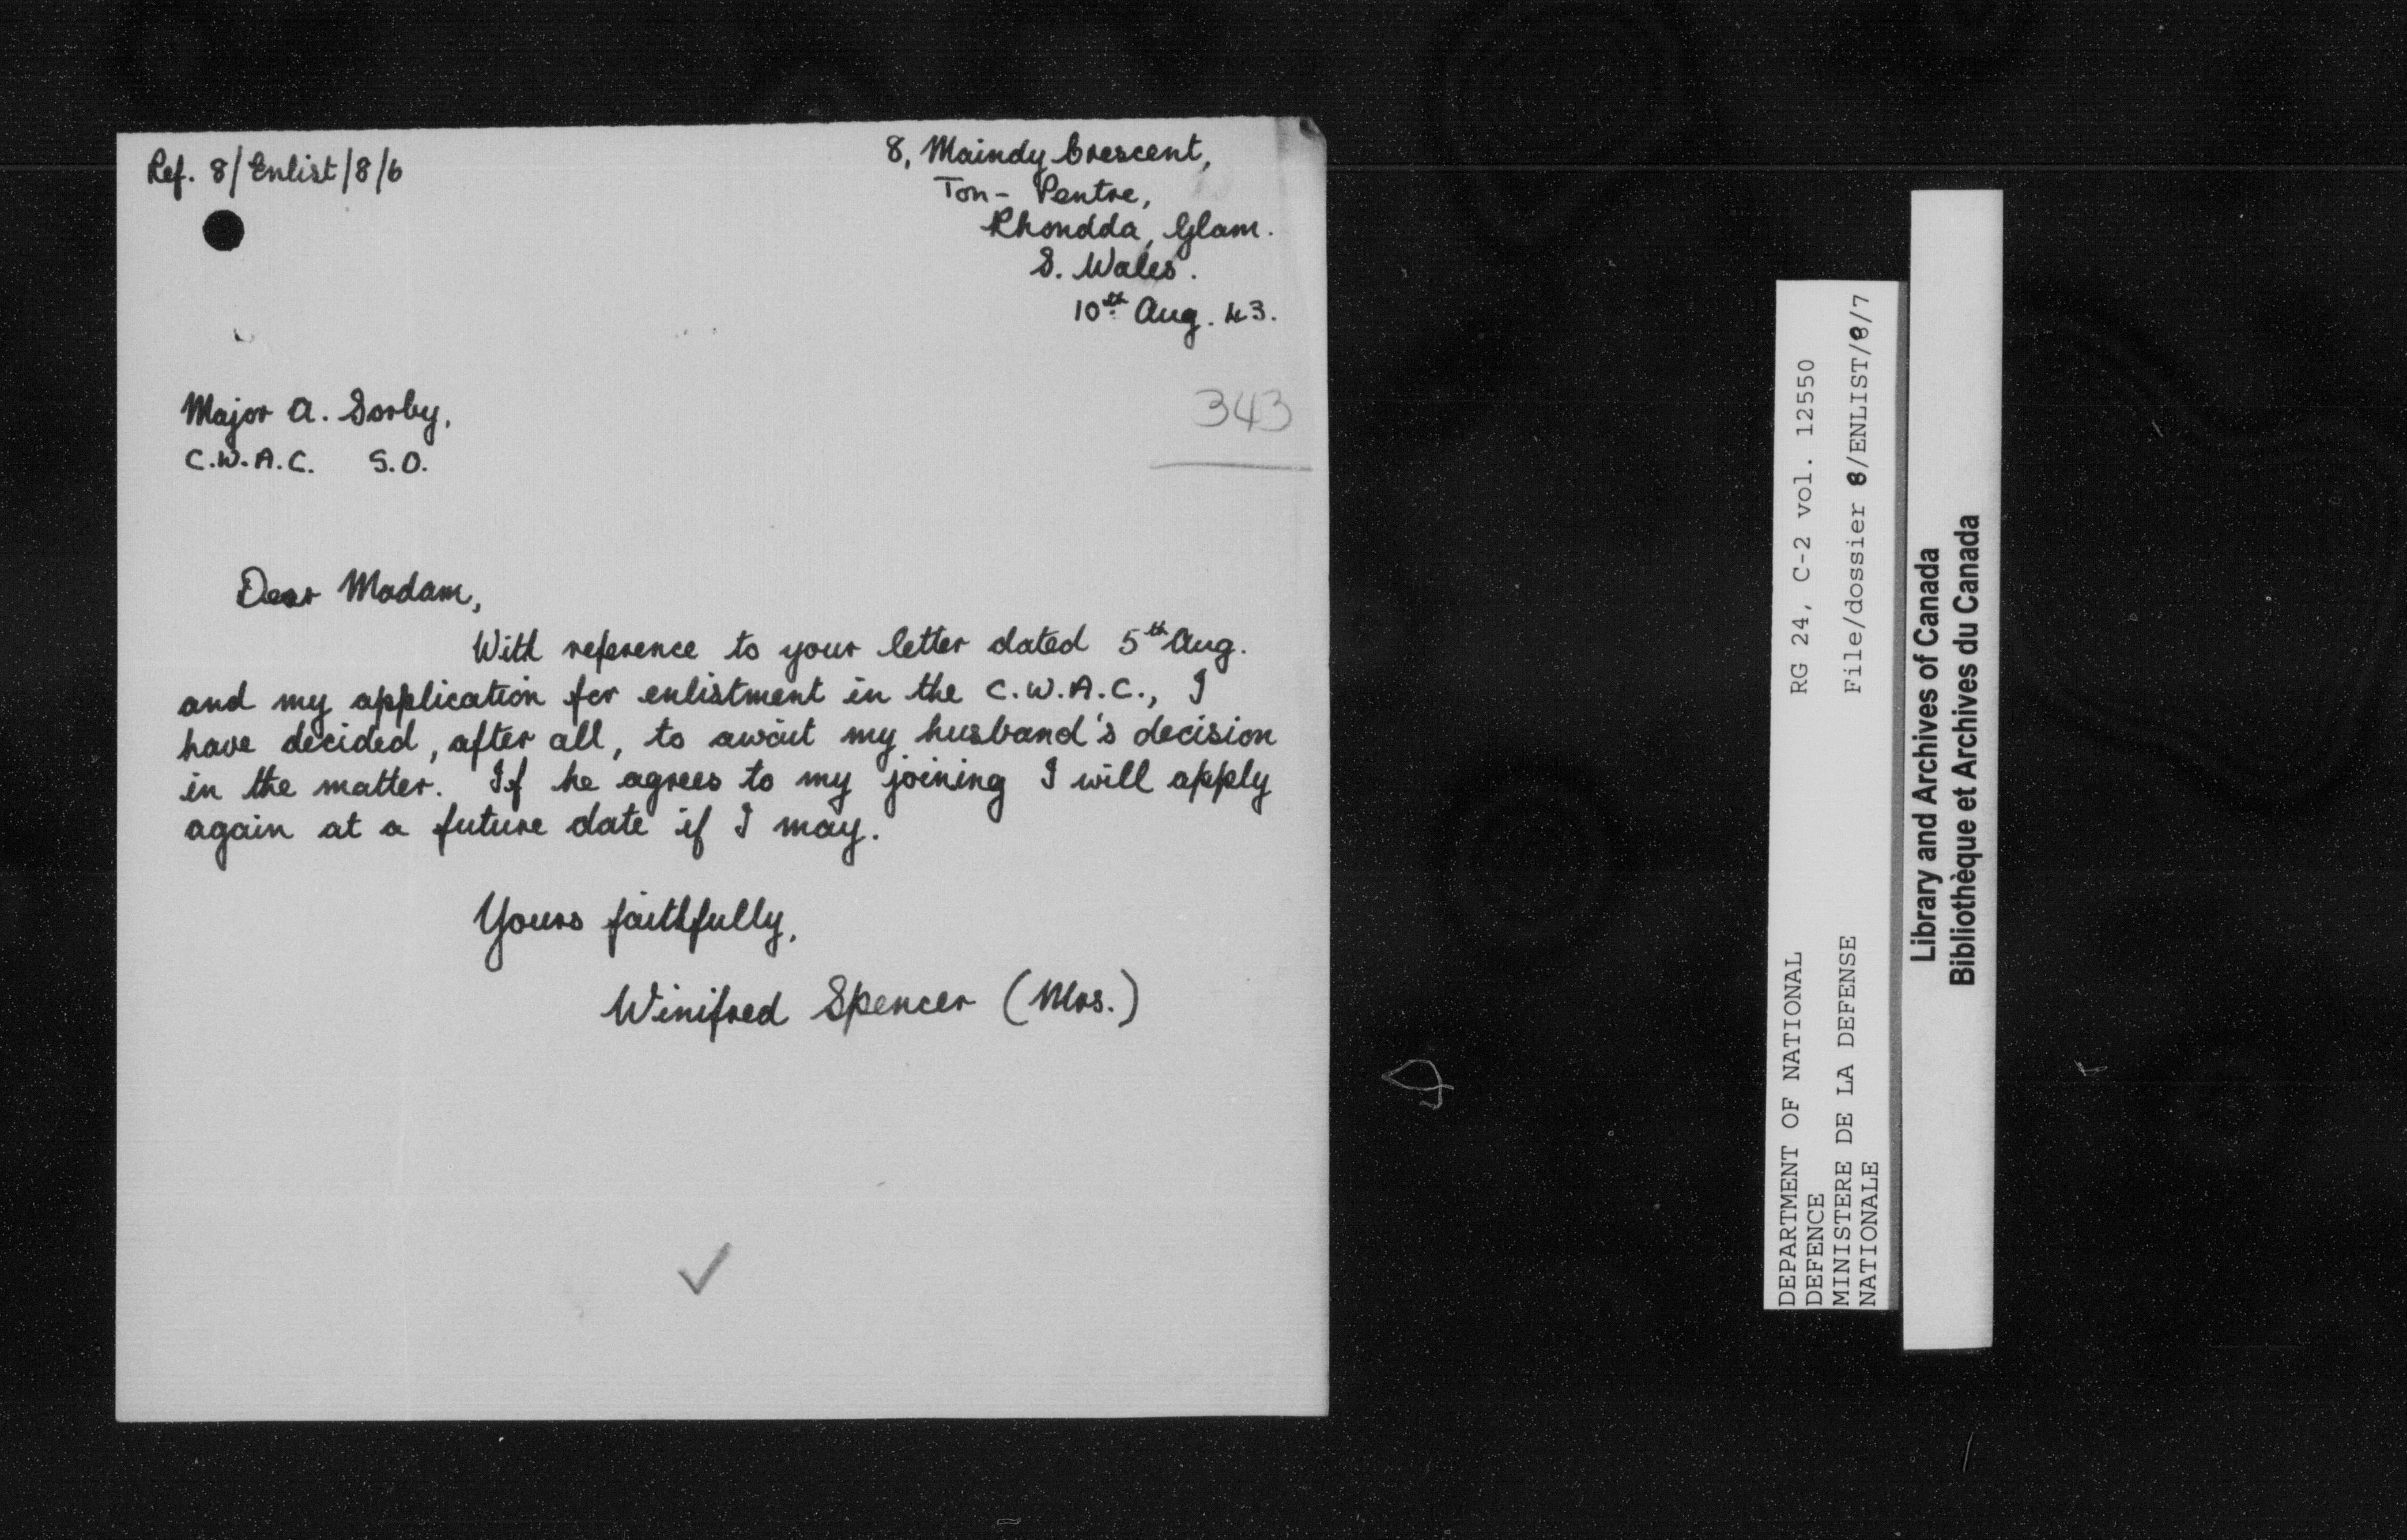 Ref. 8/Enlist/8/6
8, Maindy Crescent,
Ton- Pentre,
Rhondda, Glam.
S. Wales.
10th Aug. 43.
343
Major A. Sorby,
C.W.A.C. S.O.
Dear Madam,
With reference to your letter dated 5th Aug.
and my application for enlistment in the C.W.A.C., I
have decided, after all, to await my husband's decision
in the matter. If he agrees to my joining I will apply
again at a future date if I may.
Yours faithfully,
Winifred Spencer (Mrs.)
DEPARTMENT OF NATIONAL
DEFENCE
MINISTERE DE LA DEFENSE
NATIONALE
RG 24, C-2 vol. 12550
File/dossier 8/ENLIST/8/7
Library and Archives of Canada
Bibliothèque et Archives du Canada